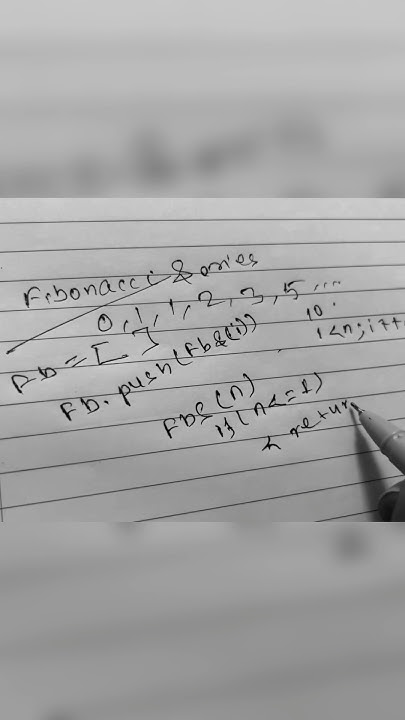 Fibonacci Series
0, 1, 1, 2, 3, 5 ....
10
Fb = [ ]
i<n; i++
Fb.push(Fbs(i))
Fbs(n)
if(n<=1)
{ return